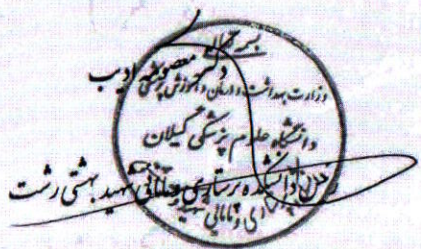 بسمه تعالی
دکتر معصومه ادیب
وزارت بهداشت درمان و آموزش پزشکی
دانشگاه علوم پزشکی گیلان
دانشکده پرستاری و مامایی شهید بهشتی رشت